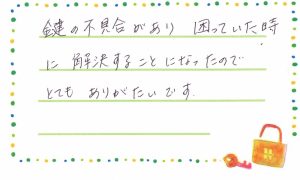 鍵の不具合があり 困っていた時
に 解決することになったので
とても ありがたいです。